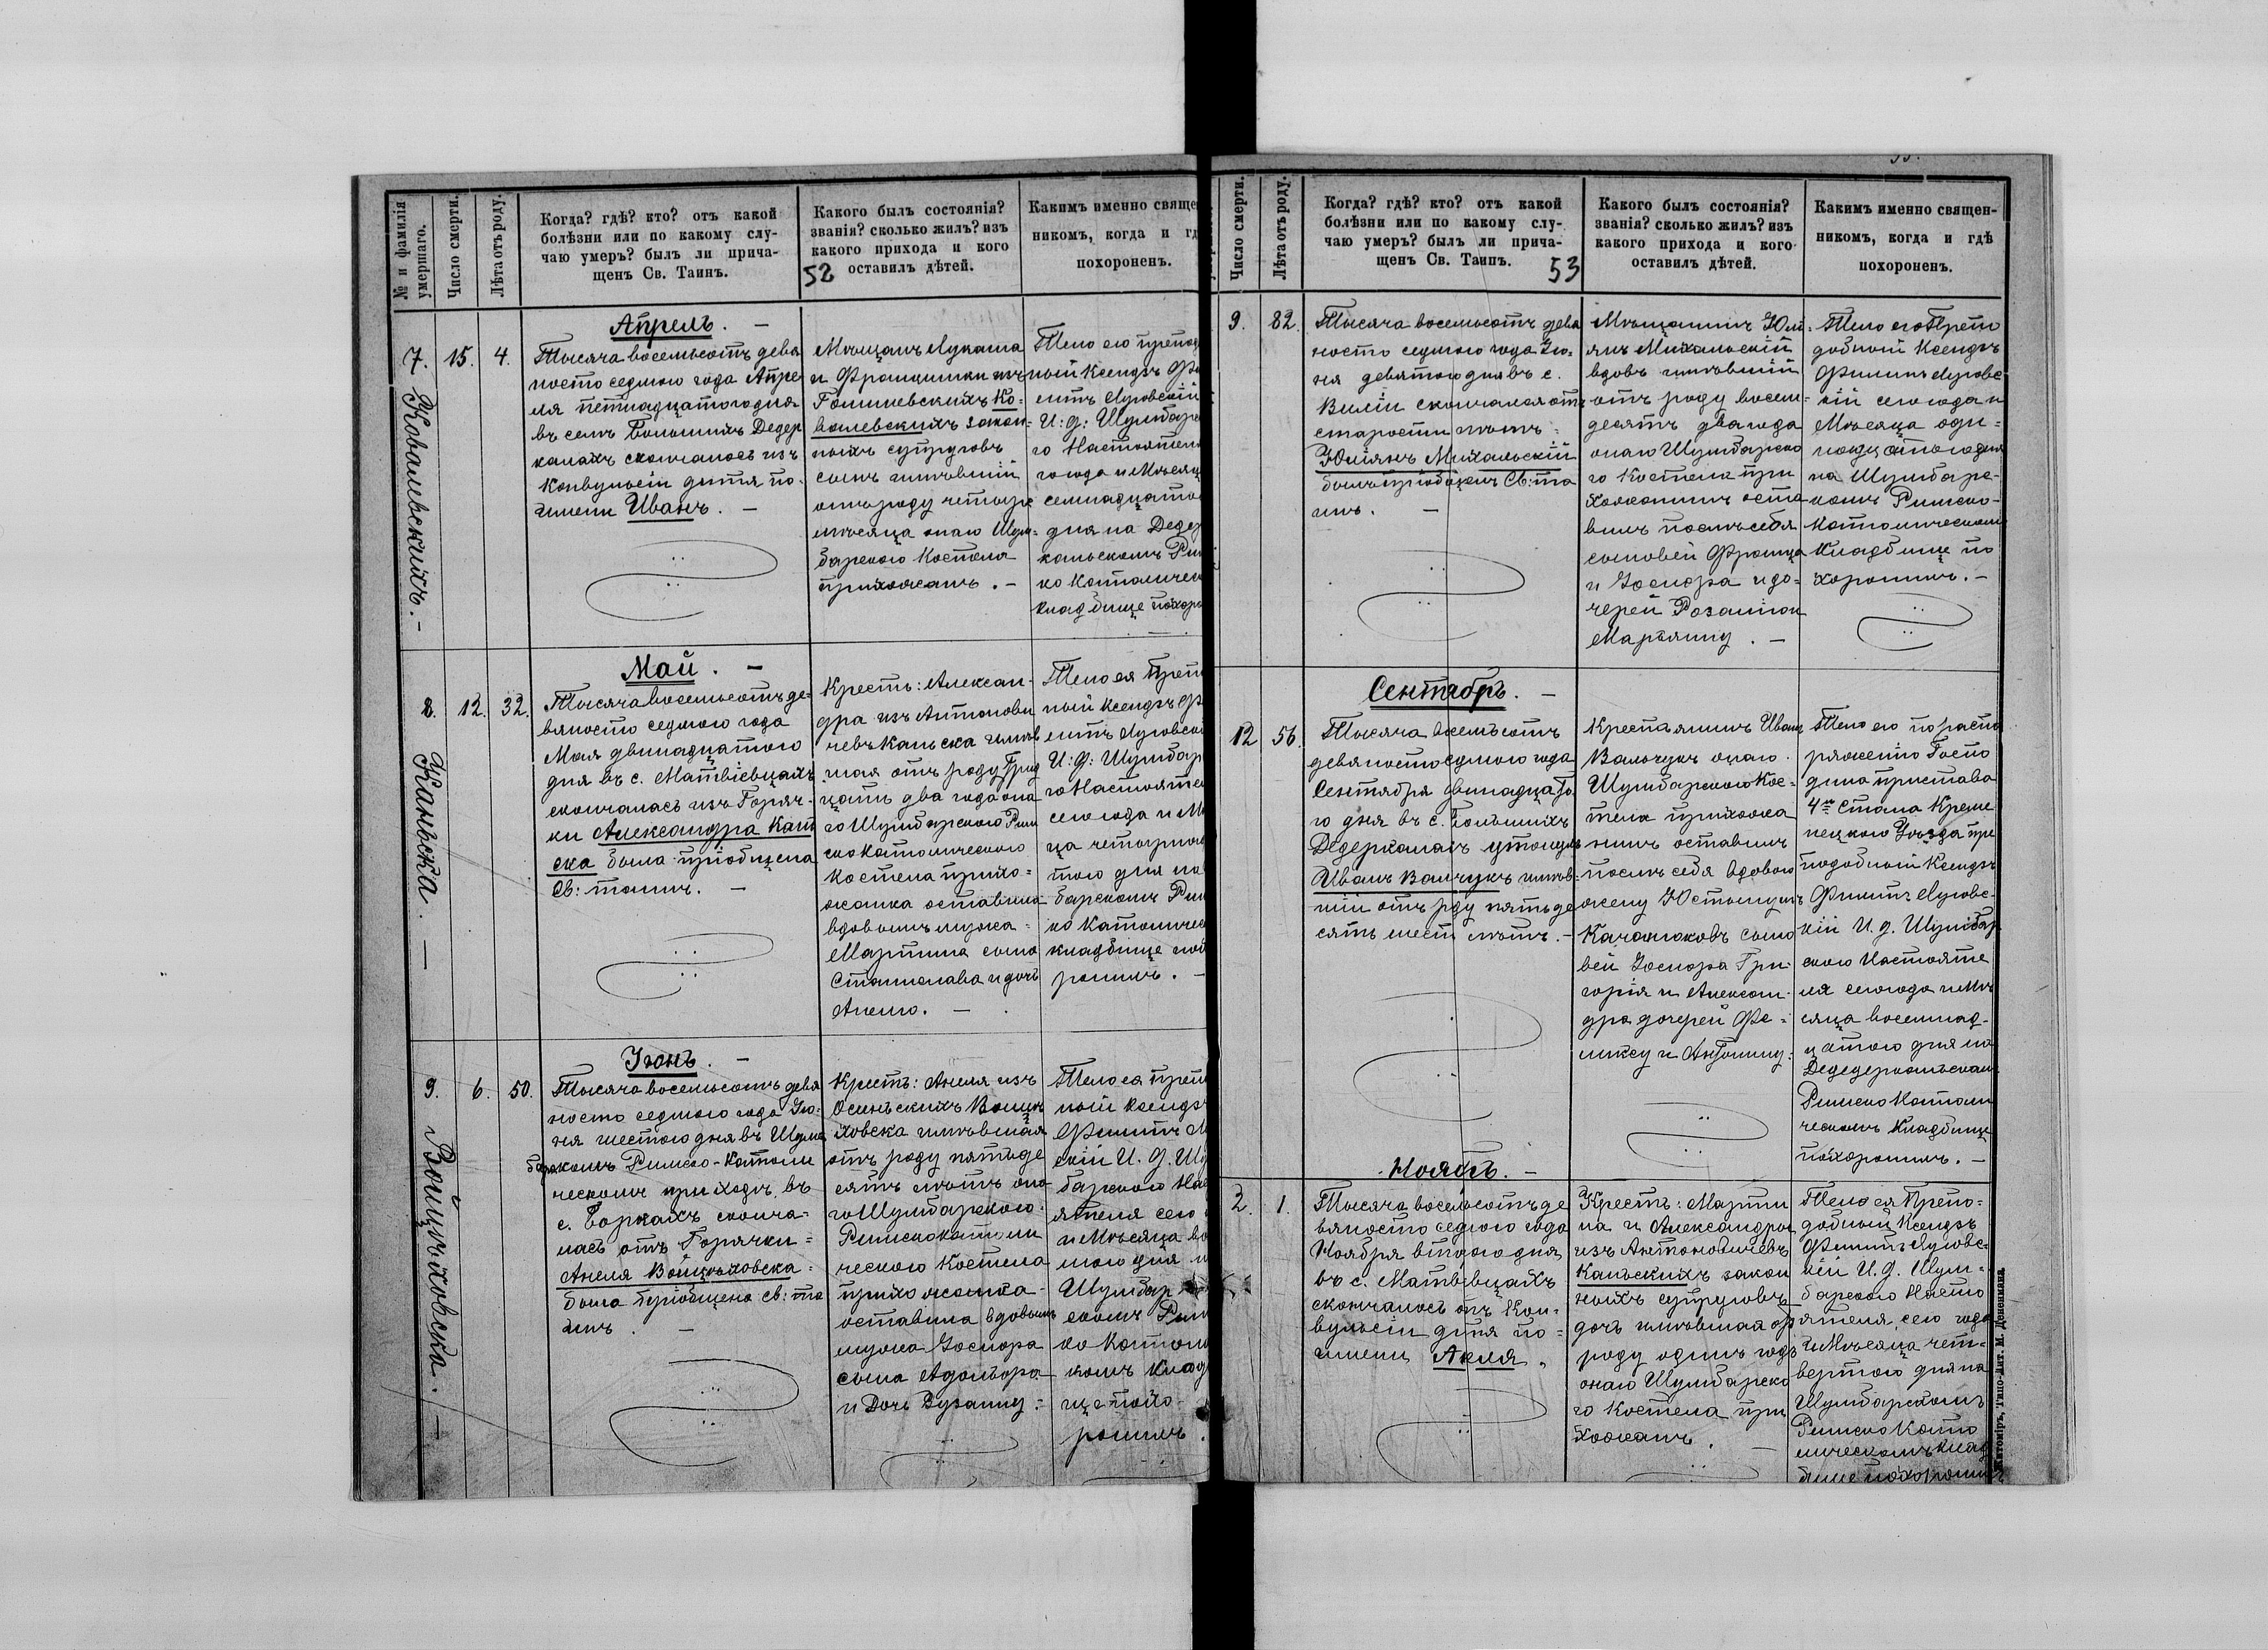 № и фамилія
умершаго.
Число смерти.
Лѣта отъ роду.
Когда? гдѣ? кто? отъ какой
болѣзни или по какому слу-
чаю умеръ? былъ ли прича-
щенъ Св. Таинъ.
Какого былъ состоянія?
званія? сколько жилъ? изъ
какого прихода и кого
оставилъ дѣтей.
52
Какимъ именно свяще
никомъ, когда и гд
похороненъ.
7.
Ковалевскихъ. —
15.
4.
Апрель. —
Тысяча восемьсотъ девя
носто седмого года Апре
ля петнадцатого дня
въ селѣ Большихъ Дедер
калахъ скончалось изъ
Конвульсіи дитя по
имени Иванъ. —
Мѣщанъ Лукаша
и Францишки изъ
Ко-
валевскихъ закон-
ныхъ супруговъ
сынъ имѣвшій
отъ роду четыре
мѣсяца онаго Шум-
барского Костела
прихожанъ. —
Тело его препод
ный Ксендзъ
Луговскій
И: д: Шумбарс
го Настоятел
го года и Мѣсяц
семнадцато
дня на Дедер
кальскомъ Рим
ко Католичес
кладбище похоро
8.
Каньска. —
12.
32.
Май. —
Тысяча восемьсотъ де-
вяносто седмого года
Мая двинадцатого
дня въ с. Матвіевцахъ
скончалась изъ Горяч-
ки Александра Кань
ска была пріобщена
Св: таинъ. —
Крестъ: Алексан-
дра изъ Антонови
чевъ Каньска имѣв
шая отъ роду Трид
цать два года она
го Шумбарского Рим
ско Католического
Костела прихо-
жанка оставила
вдовымъ мужа
Мартина сына
Станислава и дочь
Анелю. —
Тело ея преп
ный Ксендзъ
Луговск
И: д: Шумбар
го Настояте
сего года и Мѣ
ца четырна
того дня на
барскомъ Рим
ко Католичес
кладбище похо
ронилъ. —
9.
Войцѣховска. —
6.
50.
Іюнь. —
Тысяча восемьсотъ девя
носто седмого года Ію-
ня шестого дня въ Шум
барскомъ Римско-Католи
ческомъ приходѣ въ
с. Боркахъ сконча-
лась отъ Горячки
Анеля Войцѣховска
была пріобщена св: та
инъ. —
Крестъ: Анеля изъ
Осинскихъ Войцѣ
ховска имѣвшая
отъ роду пятьде
сятъ лѣтъ она
го Шумбарского
Римскокатоли
ческого Костела
прихожанка
оставила вдовымъ
мужа Іосифа
сына Адольфа
и Дочь Рузалию
Тело ея преп
ный Ксендзъ
скій И. д. Шу
барского Нас
ятеля сего
и Мѣсяца во
мого дня
Шумбар
скомъ Рим
ко Католи
комъ Клад
ще похо
ронилъ.
Число смерти.
Лѣта отъ роду.
Когда? гдѣ? кто? отъ какой
болѣзни или по какому слу-
чаю умеръ? былъ ли прича-
щенъ Св. Таинъ.
53
Какого былъ состоянія?
званія? сколько жилъ? изъ
какого прихода и кого
оставилъ дѣтей.
Какимъ именно священ-
никомъ, когда и гдѣ
похороненъ.
9.
82.
Тысяча восемьсотъ девя
носто седмого года Ію-
ня девятого дня въ с.
Виліи скончался отъ
старости лѣтъ
Юліянъ Михальскій
былъ пріобщенъ Св: та
инъ. —
Мѣщанинъ Юлі-
янъ Михальскій
вдовъ имѣвшій
отъ роду восем-
десятъ два года
онаго Шумбарско
го Костела при
хожанинъ оста
вилъ послѣ себя
сыновей Франца
и Іосифа и до-
черей Розалію и
Марьянну. —
Тело его Препо
добный Ксендзъ
Луговс
кій сего года и
Мѣсяца оди-
надцатого дня
на Шумбарс-
комъ Римско-
Католическомъ
Кладбище по
хоронилъ. —
12
56.
Сентябрь. —
Тысяча восемьсотъ
девяносто седмого года
Сентября двинадцато
го дня въ с. Большихъ
Дедеркалахъ утонулъ
Иванъ Вальчукъ имѣв-
шій отъ роду пятьде
сятъ шесть лѣтъ. —
Крестьянинъ Иванъ
Вальчукъ онаго
Шумбарского Кос-
тела прихожа
нинъ оставилъ
послѣ себя вдовою
жену Юстыну изъ
сыно
вей Іосифа Гри-
горія и Алексан-
дра дочерей Фе-
ликсу и Антонину.
Тело его по распо
ряженію Госпо
дина пристава
4го Стана Креме
нецкого Уѣзда пре
подобный Ксендзъ
Луговс-
кій И. д. Шумбар
ского Настояте
ля сего года и Мѣ
сяца восемнад-
цатого дня на
Дедедеркальскомъ
Римско Католи
ческомъ Кладбищѣ
похоронилъ. —
2.
1.
Ноябрь. —
Тысяча восемьсотъ де
вяносто седмого года
Ноября второго дня
въ с. Матвѣвцахъ
скончалось отъ Кон-
вульсіи дитя по-
имени Анеля.
Крестъ: Марти
на и Александры
изъ Антоновичевъ
Каньскихъ закон
ныхъ супруговъ
дочь имѣвшая отъ
роду одинъ годъ
онаго Шумбарско
го Костела при
хожанъ. —
Тело ея Препо-
добный Ксендзъ
Луговс-
кій И. д. Шум-
барского Насто
ятеля сего года
и Мѣсяца чет-
вертого дня на
Шумбарскомъ
Римско Като
лическомъ клад
бище похоронилъ
Житоміръ, Типо-Лит. М. Дененмана.